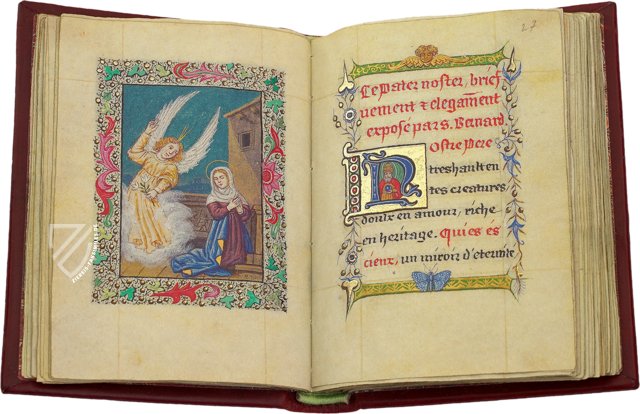 27
Le Pater noster, brief
uement & elegãment
exposé par S. Bernard
Nostre Pere
treshault en
tes creatures
doulx en amour, riche
en heritage. Qui es es
cieux, un miroir d'eternite